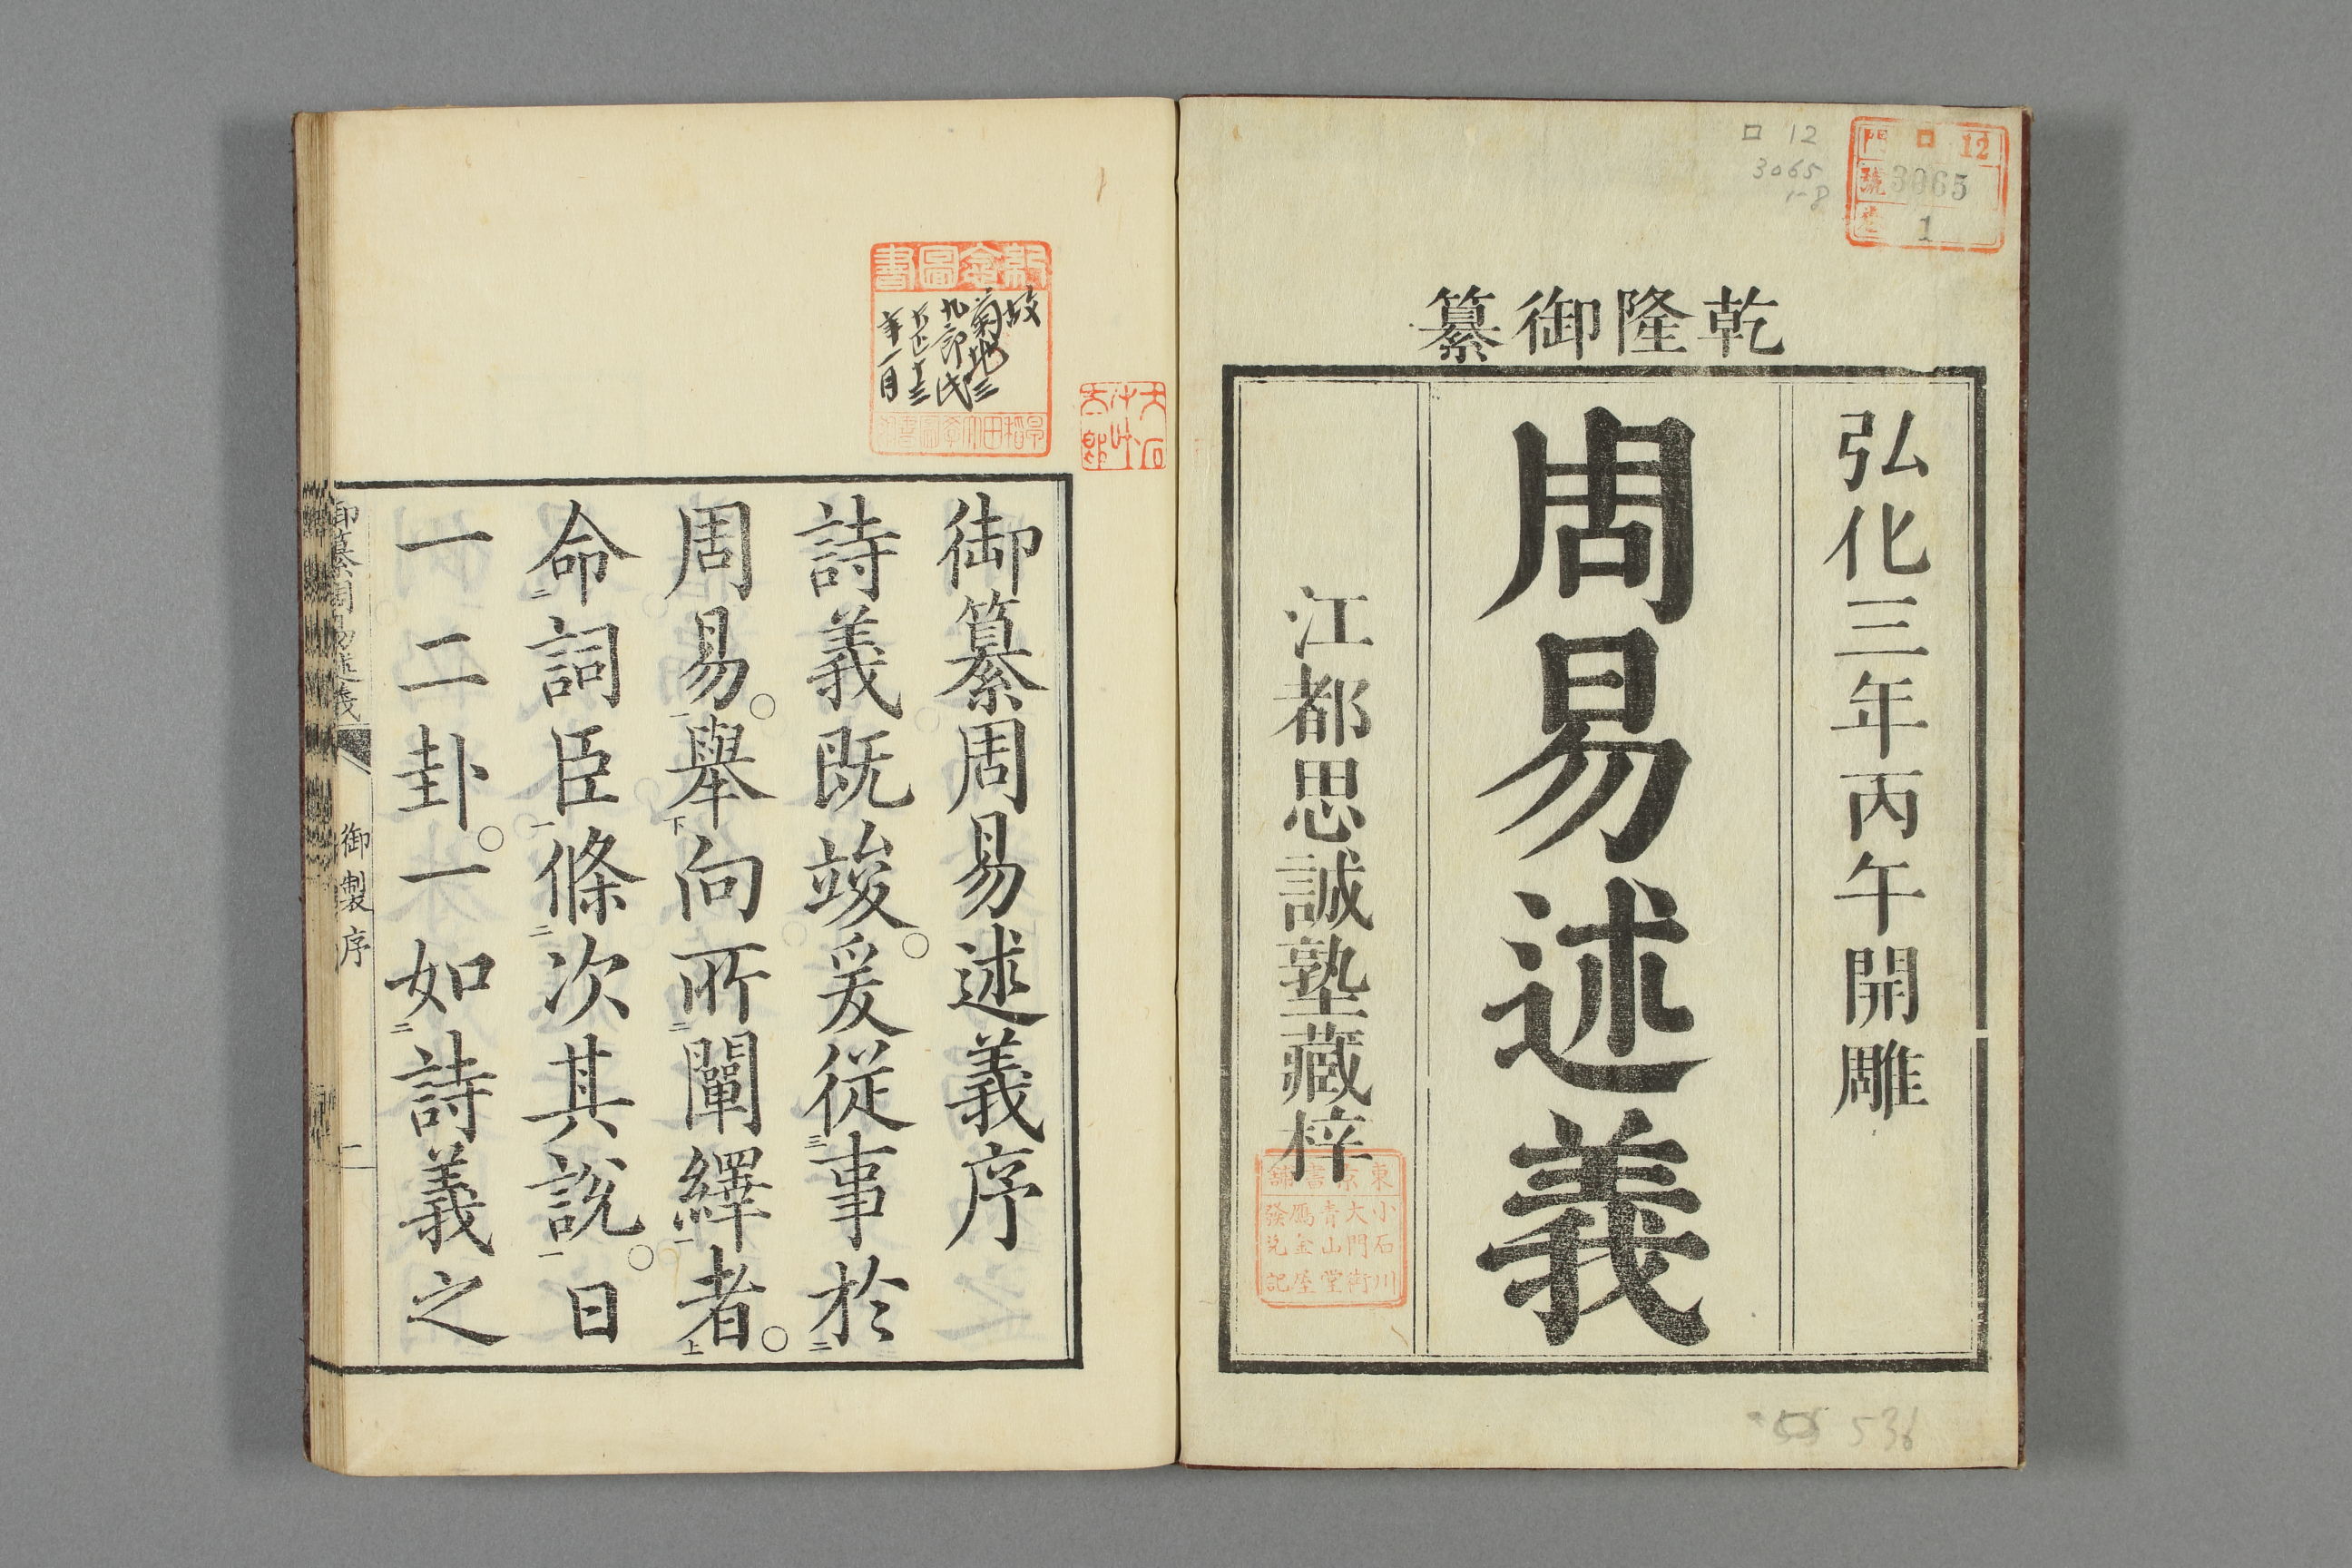 ロ 12
3065
1-8
門 ロ 12
號 3065
1
乾隆御纂
弘化三年丙午開雕
周易述義
江都思誠塾藏梓
東京書舖
小石川
大門街
青山堂
鴈金屋
發兌記
536
故
菊地三
九郎氏
大正十三
年一月
圖書
御纂周易述義序
詩義既竣爰従事於
周易擧向所闡繹者
命詞臣條次其説日
一二卦一如詩義之
御纂周易述義
御製序
一